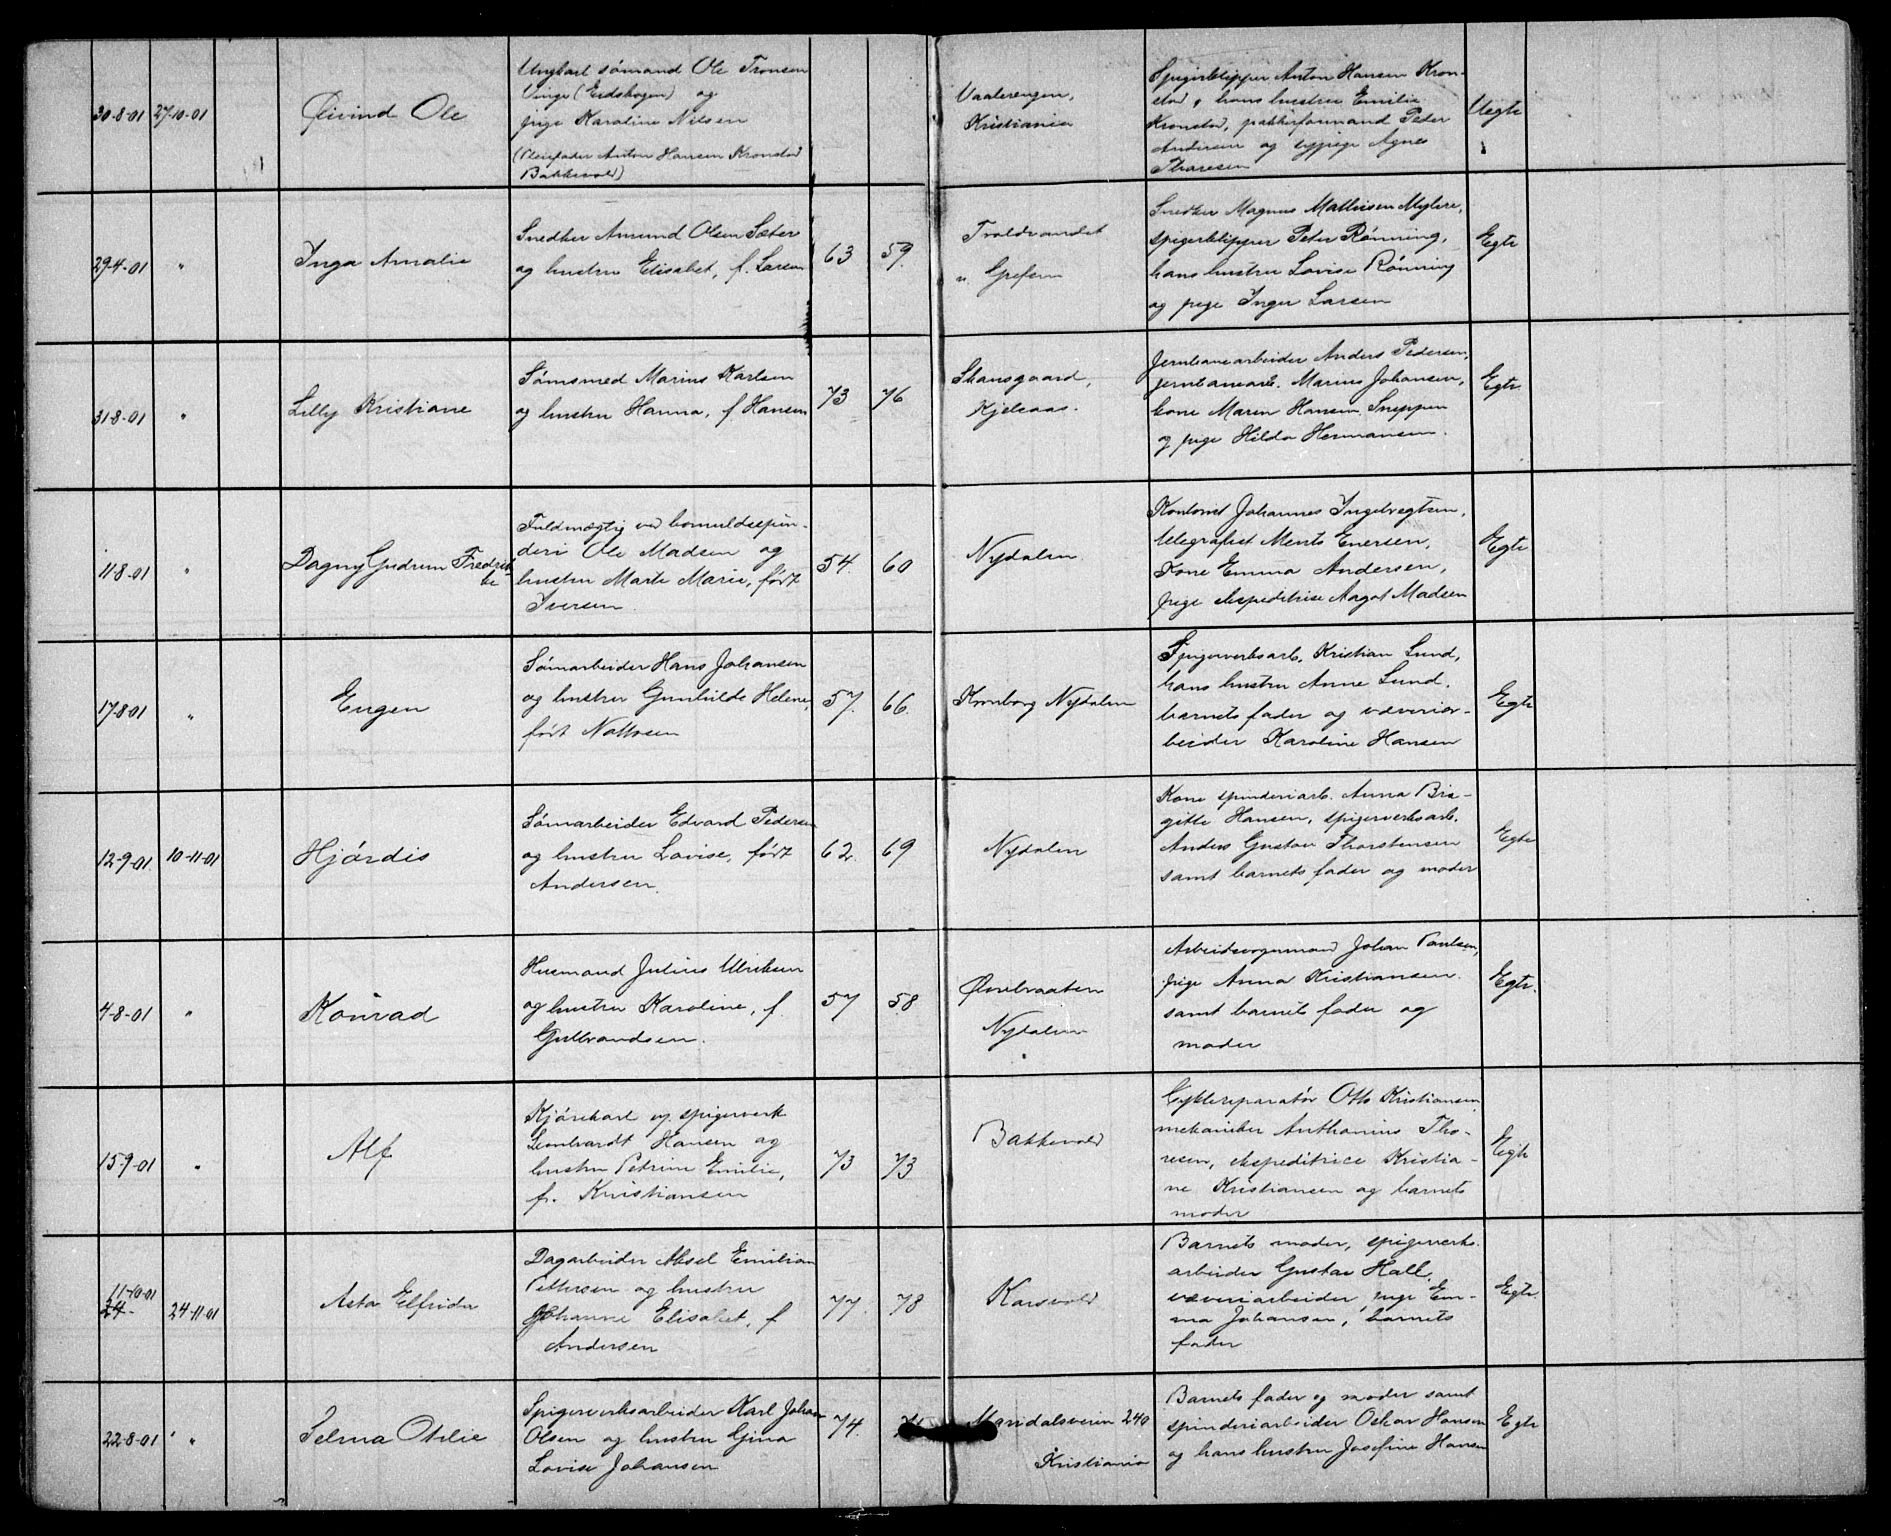 30-8-01 27-10-01 Øivind Ole
Ungkarl sømand Ole Tronsen
Vinge (Eidskogen) og
pige Karoline Nilsen
(Pleiefader Anton Hansen Kronstad
Bakkevold)
Vaalerengen,
Kristiania
Spigerklipper Anton Hansen Kron-
stad, hans hustru Emilie
Kronstad, pakkerformand Peder
Andersen og sypige Agnes
Thoresen
Uegte
29-4-01 " Inga Amalie
Snedker Amund Olsen Sæter
og hustru Elisabet, f. Larsen
63 59.
Troldvandet
v. Grefsen
Snedker Magnus Mathisen Myhre,
spigerklipper Peter Rønning,
hans hustru Lovise Rønning
og pige Inger Larsen
Egte
31-8-01 " Lilly Kristiane
Sømsmed Marius Karlsen
og hustru Hanna, f Hansen
73 76
Skansgaard,
Kjelsaas.
Jernbanearbeider Anders Pedersen,
jernbanearb. Marius Johansen,
kone Maren Hansen Sneppen
og pige Hilda Hermansen.
Egte
11-8-01 " Dagny Gudrun Fredrik-
ke
Fuldmægtig ved bomuldsspin-
deri Ole Madsen og
hustru Marte Marie, født
Iversen.
54. 60
Nydalen
Kontorist Johannes Ingebregtsen,
telegrafist Ments Enersen,
Kone Emma Andersen,
pige ekspeditrise Aagot Madsen
Egte
17-8-01 " Eugen
Sømarbeider Hans Johansen
og hustru Gunhilde Helene,
født Nottosen
57. 66.
Kronborg Nydalen
Spigerverksarb. Kristian Lund,
hans hustru Anne Lund.
barnets fader og væveriar-
beider Karoline Hansen
Egte
12-9-01 10-11-01 Hjørdis
Sømarbeider Edvard Pedersen
og hustru Lovise, født
Andersen.
62. 69
Nydalen
Kone spinderiarb. Anna Bir-
gitte Hansen, spigerverksarb.
Anders Gustav Thorstensen
samt barnets fader og moder
Egte
4-8-01 " Konrad
Husmand Julius Ulriksen
og hustru Karoline, f.
Gulbrandsen.
57 58
Øvrebraaten
Nydalen
Arbeidsvognmand Johan Paulsen,
pige Anna Kristiansen.
samt barnets fader og
moder
Egte.
15-9-01 " Alf
Kjørekarl v. spigerverk
Lenhardt Hansen og
hustru Petrine Emilie,
f. Kristiansen
73 73
Bakkevold
Cyklereparatør Otto Kristiansen,
mekaniker Anthonius Tho-
resen, ekspeditrice Kristia-
ne Kristiansen og barnets
moder
Egte
11-10-01
24- 24-11-01 Asta Elfrida
Dagarbeider Aksel Emilian
Pettersen og hustru
Johanne Elisabet, f
Andersen
77. 78
Karsvold
Barnets moder, spigerverks.
arbeider Gustav Hall,
væveriarbeider, pige Em-
ma Johansen, barnets
fader
Egte
22-8-01 " Selma Otilie
Spigerverksarbeider Karl Johan
Olsen og hustru Gina
Lovise Johansen
74.
Maridalsveien 240
Kristiania
Barnets fader og moder samt
spinderiarbeider Oskar Hansen
og hans hustru Josefine Hansen
Egte